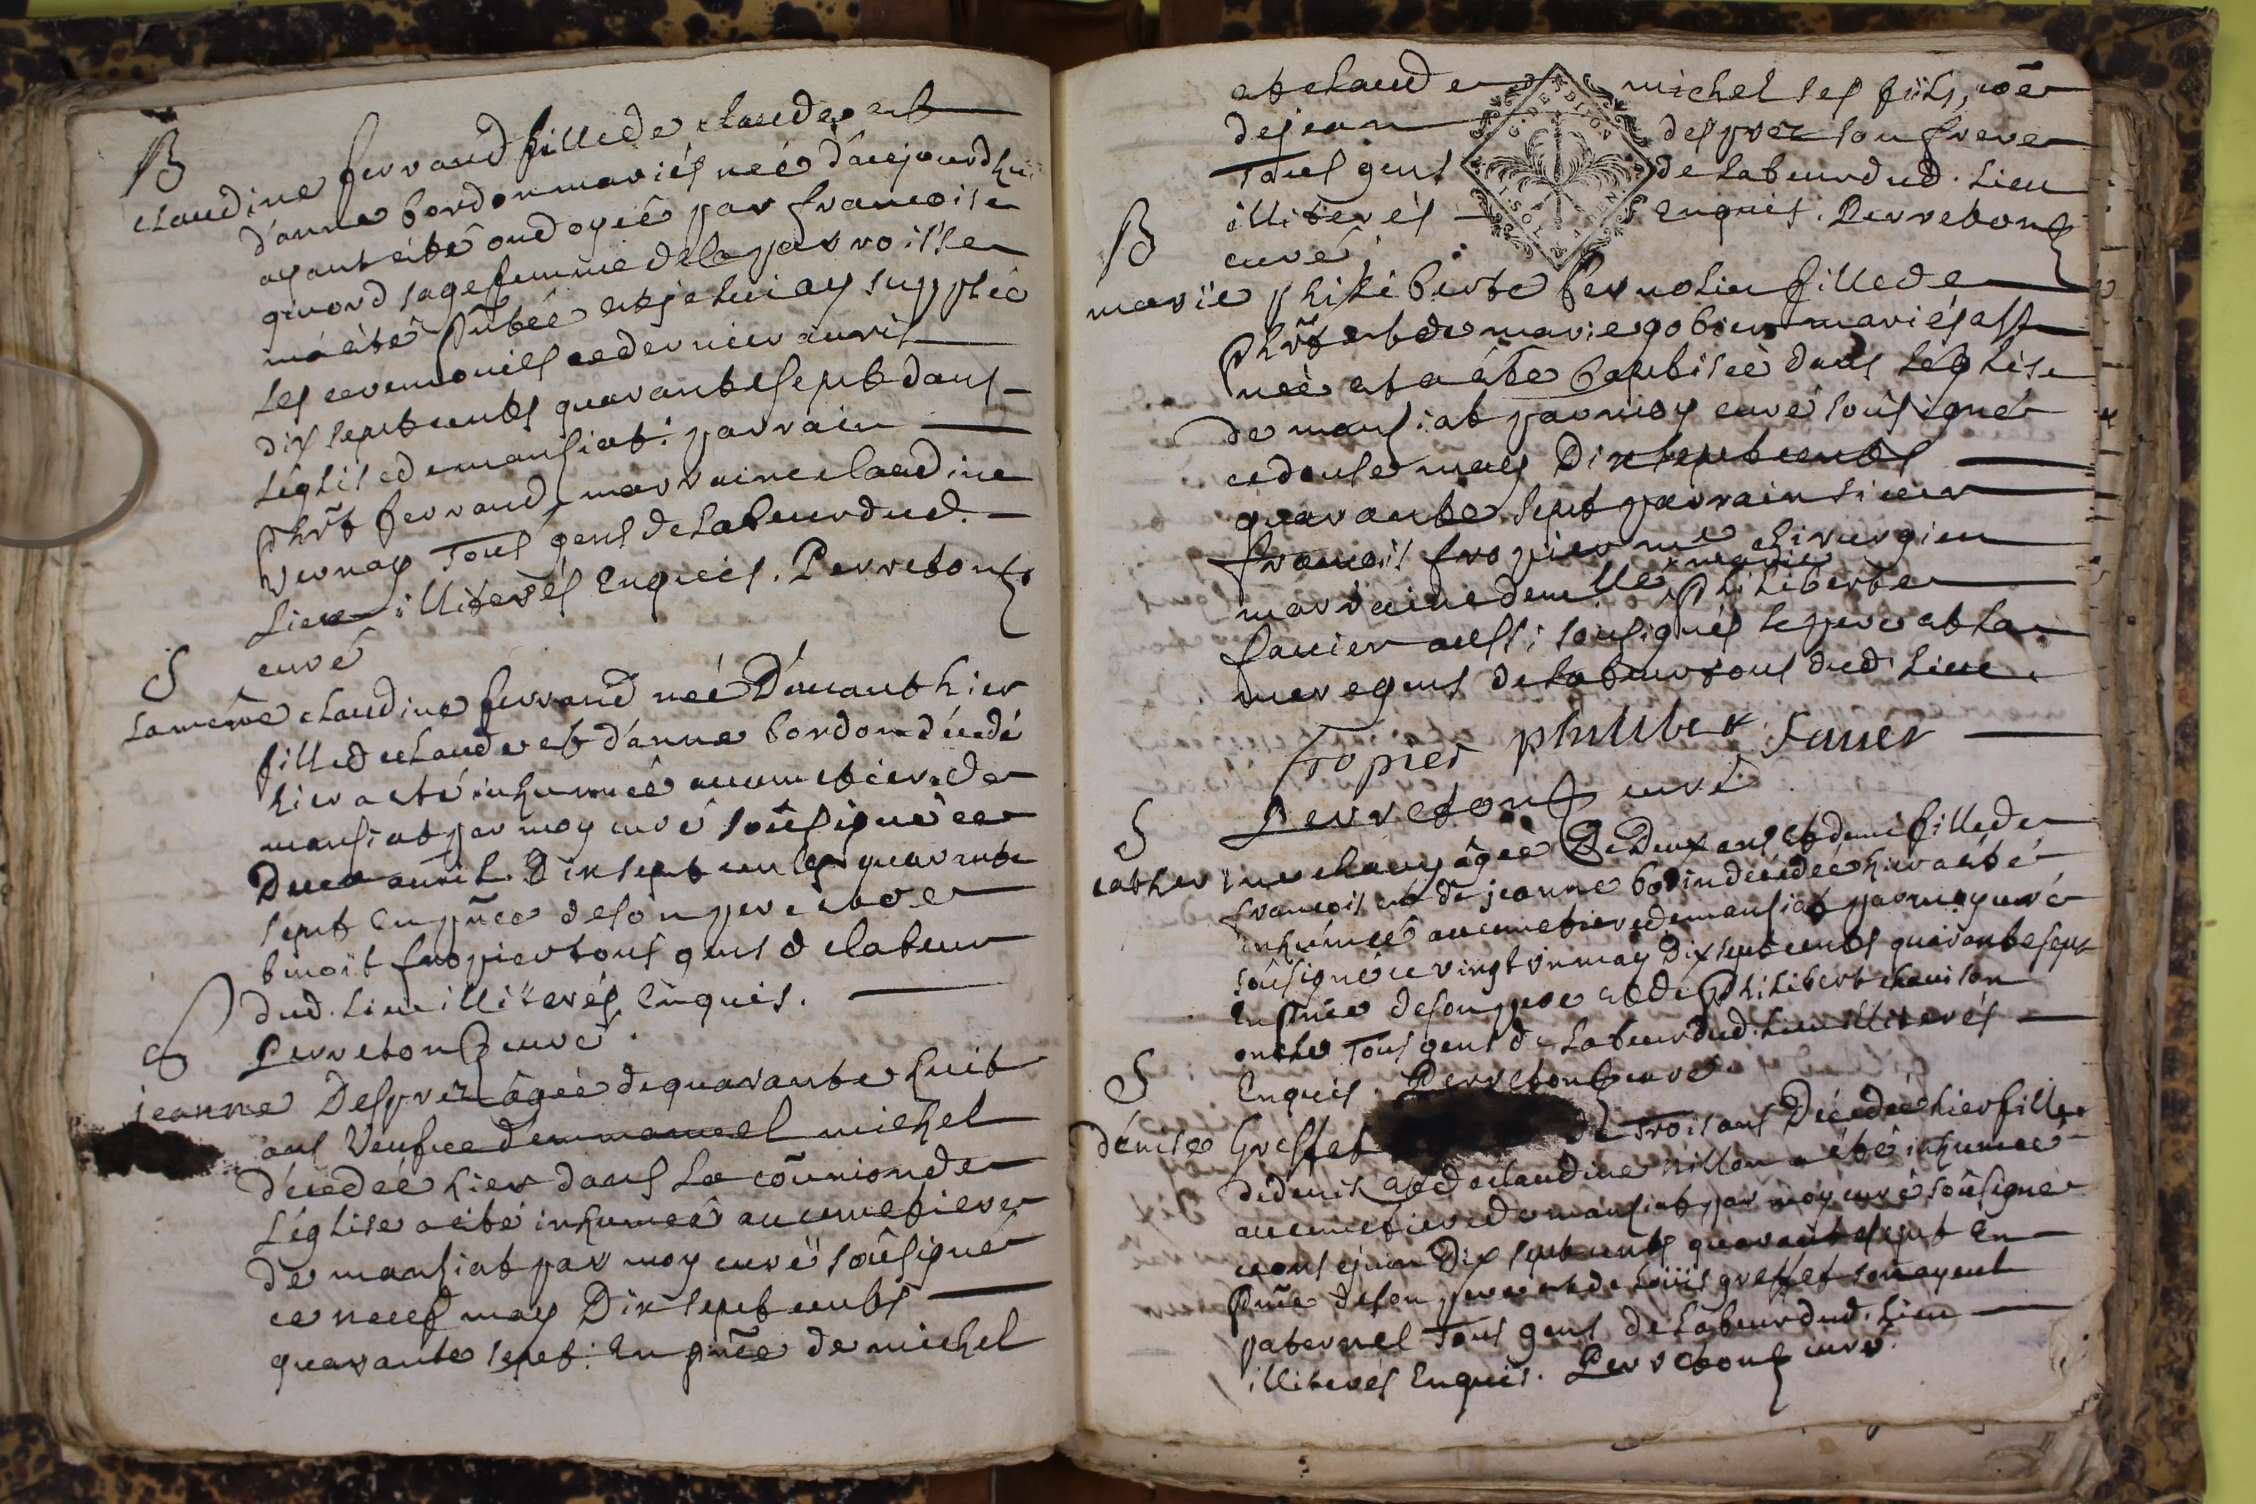 B
claudine ferrand fille de claude et
d'anne bordon mariés neé d'aujourdhui
ayant eté ondoyeé par francoise
guiord sagefemme de la parroisse
m'a eté pñtée et je lui ay suppleé
les ceremonies ce dernier avril
dix sept cents quarante sept dans
l'église de mansiat: parrain
phřt ferrand, marraine claudine
vernay tous gens de labeur dud.
lieu illiterés Enquis. Perreton
curé
S
la même claudine ferrand neé D'avant hier
fille de claude et d'anne bordon décedé
hier a eté inhumeé au cimetiere de
mansiat par moy curé soûsigné ce
Deux avril Dix sept cents quarante
sept En pñce de son pere et de
benoït fropier tous gens de labeur
dud. lieu illiterés Enquis.
Perreton curé
S
jeanne Desprez âgeé de quarante huit
ans veufve d'emmanuel michel
décedeé hier dans la coñmion de
l'église a eté inhumeé au cimetiere
de mansiat par moy curé soûsigné
ce neuf may Dix sept cents
quarante sept: En pñce de michel
et claude michel ses fils, cõe
de jean desprez son frere
Tous gens de labeur dud. lieu
illiterés Enquis. Perreton
curé
B
marie philiberte fernolin fille de
phřt et de marie gobier mariés est
neé et a eté baptiseé dans l'église
de mansiat par moy curé soûsigné
ce douse may Dix sept cents
quarante sept parrain sieur
francois fropier me chirurgien
marraine demlle marie philiberte
favier aussi soûsignés le pere et la
mere gens de labeur tous dud. lieu.
fropier philiber favier
Perreton curé
S
catherine chavy âgeé De Deux ans et demi fille de
francois et de jeanne bodin décedeé hier a eté
inhumeé au cimetiere de mansiat par moy curé
soûsigné ce vingt un may Dix sept cents quarante sept
En pñce de son pere et de philibert chavison
oncle Tous gens de labeur dud. lieu illiterés
Enquis. Perreton curé
S
dénise Greffet de Trois ans Décedeé hier fille
de denis et de claudine nillon a eté inhumeé
au cimetiere de mansiat par moy curé soûsigné
ce onse juin Dix sept cents quarante sept En
pñce de son pere et de loüis greffet son ayeul
paternel Tous gens de labeur dud. lieu
illiterés Enquis. Perreton curé